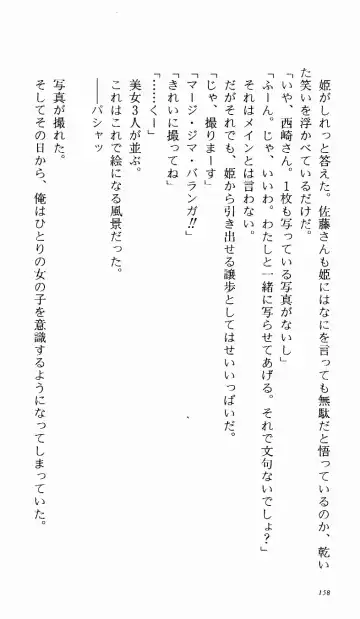 姫がしれっと答えた。佐藤さんも姫にはなにを言っても無駄だと悟っているのか、乾い
た笑いを浮かべているだけだ。
「いや、西崎さん。1枚も写っている写真がないし」
「ふーん。じゃ、いいわ。わたしと一緒に写らせてあげる。それで文句ないでしょ?」
それはメインとは言わない。
だがそれでも、姫から引き出せる譲歩としてはせいいっぱいだ。
「じゃ、撮りまーす」
「マージ・ジマ・バランガ!!」
「きれいに撮ってね」
「……くー」
美女3人が並ぶ。
これはこれで絵になる風景だった。
――パシャッ
写真が撮れた。
そしてその日から、俺はひとりの女の子を意識するようになってしまっていた。
158